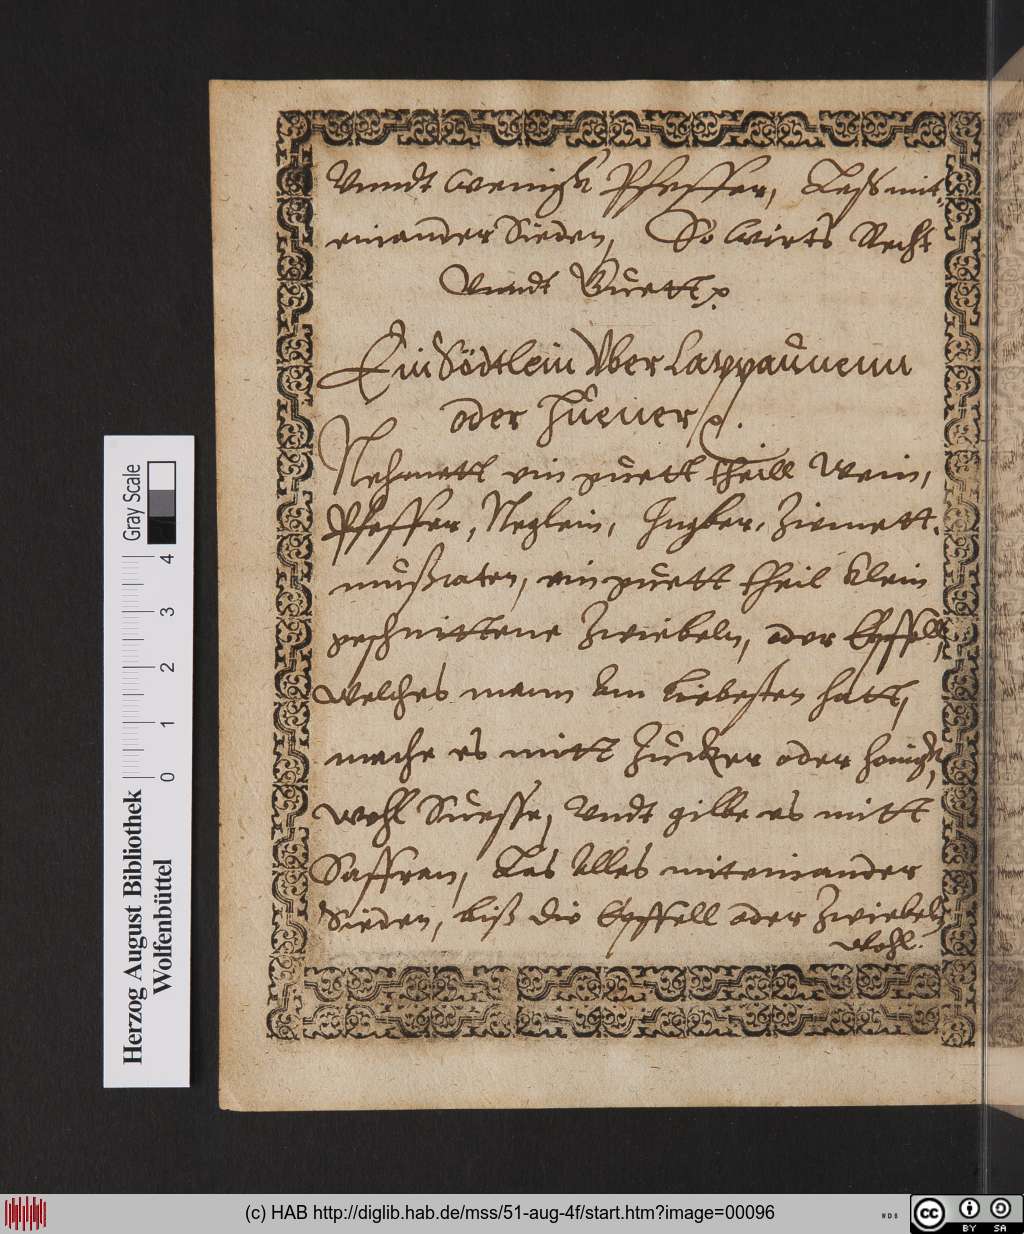 Vnndt wenigk Pfeffer, Laß mit-
einander Sieden, So wirts Recht
Vnndt Guett.
Ein Södtlein Vber Cappaunenn
oder Hüener.
Nehmett ein guett theill Wein,
Pfeffer, Neglein, Ingber, Zimmett.
mußcaten, ein guett theil klein
geschnittene Zwiebeln, oder Epffell,
welches mann Am liebesten hatt,
mache es mitt Zucker oder honigk,
wohl Süesse, Vndt gilbe es mitt
Saffran, Las Alles miteinander
Sieden, biß die Epffell oder Zwiebeln
wohl.
Gray Scale
4 3 2 1 0
Herzog August Bibliothek
Wolfenbüttel
(c) HAB http://diglib.hab.de/mss/51-aug-4f/start.htm?image=00096
WDB
cc BY SA